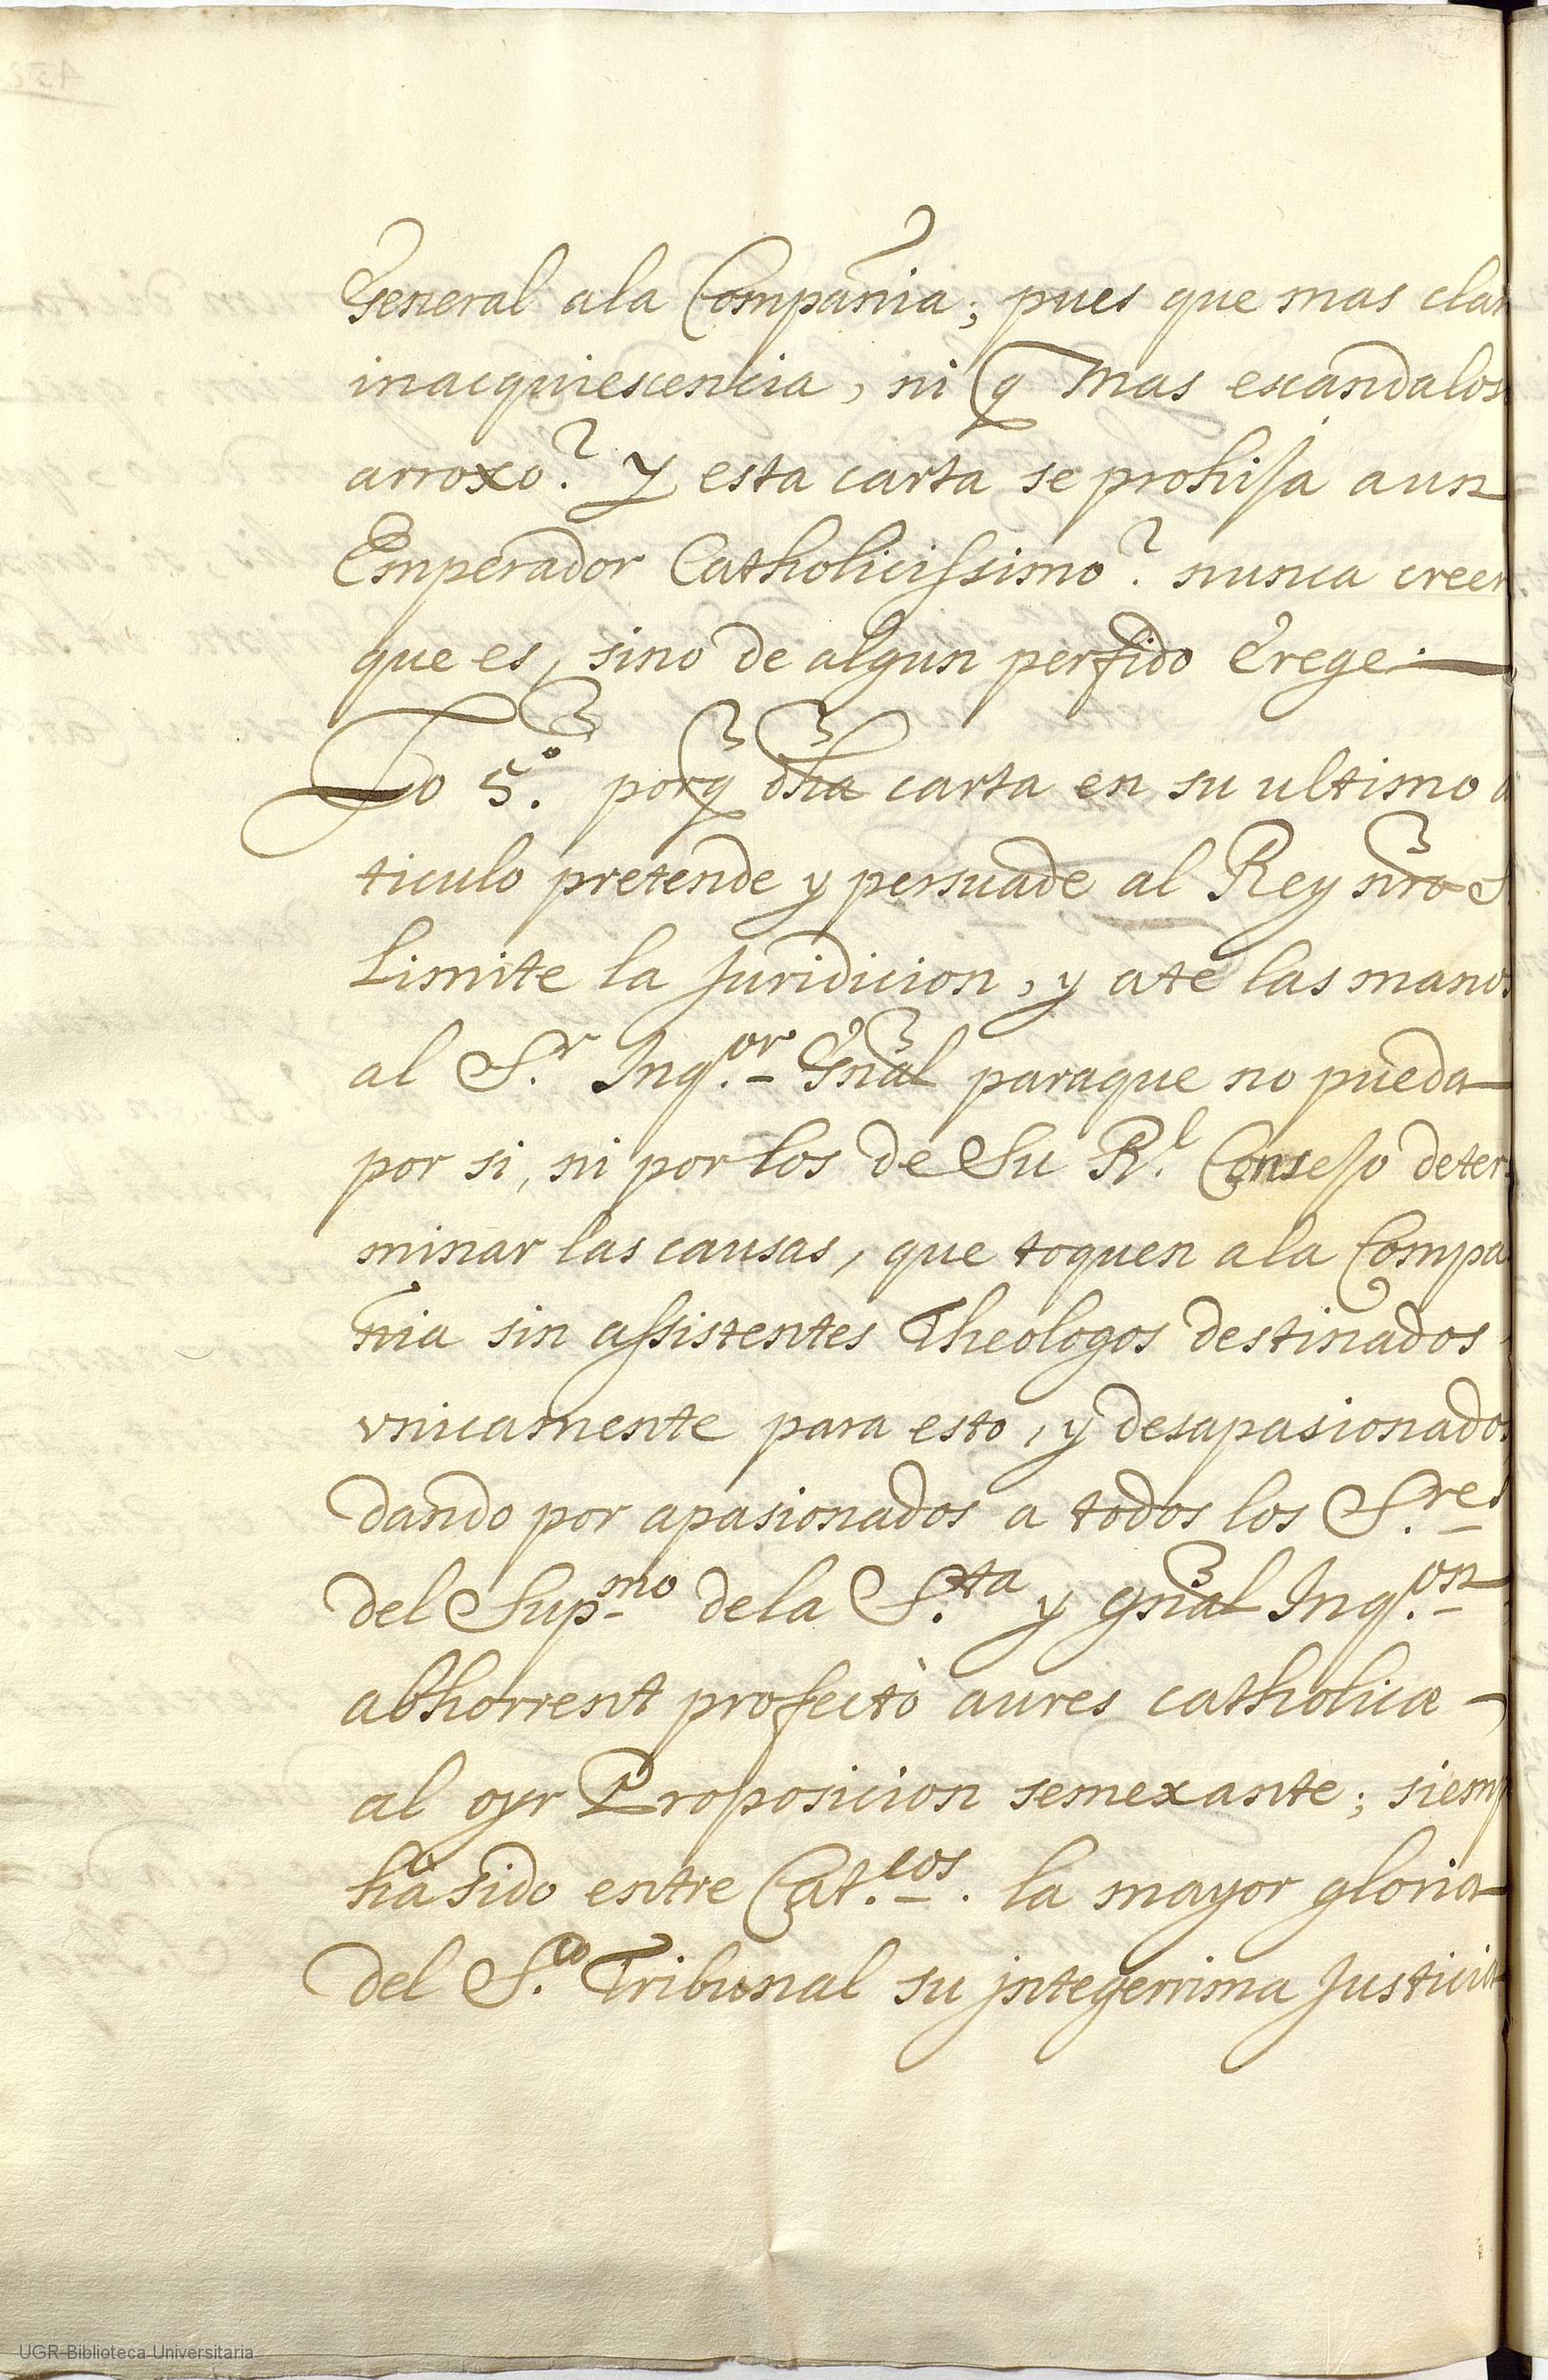 General ala Compañia; pues que mas clar
inacquiescencia, ni q̃ mas escandalos
arroxo? Y esta carta se prohija aun
Emperador Catholicissimo? nunca creer
que es, sino de algun perfido Erege.
Lo 5.º porq̃ dha carta en su ultimo a
ticulo pretende y persuade al Rey nr̃o S
Limite la Juridicion, y ate las manos
al S.r Inq.or Gñal paraque no pueda
por si, ni por los de Su R.l Consejo deter
minar las causas, que toquen ala Compa
ñia sin assistentes Theologos destinados
vnicamente para esto, y desapasionados
dando por apasionados a todos los S.res
del Sup.mo dela S.ta y gñal Inq.on
abhorrent profectò aures catholicæ
al oyr Proposicion semexante; siemp
hà sido entre Cat.cos la mayor gloria
del S.to Tribunal su jntegerrima Justicia
UGR-Biblioteca Universitaria